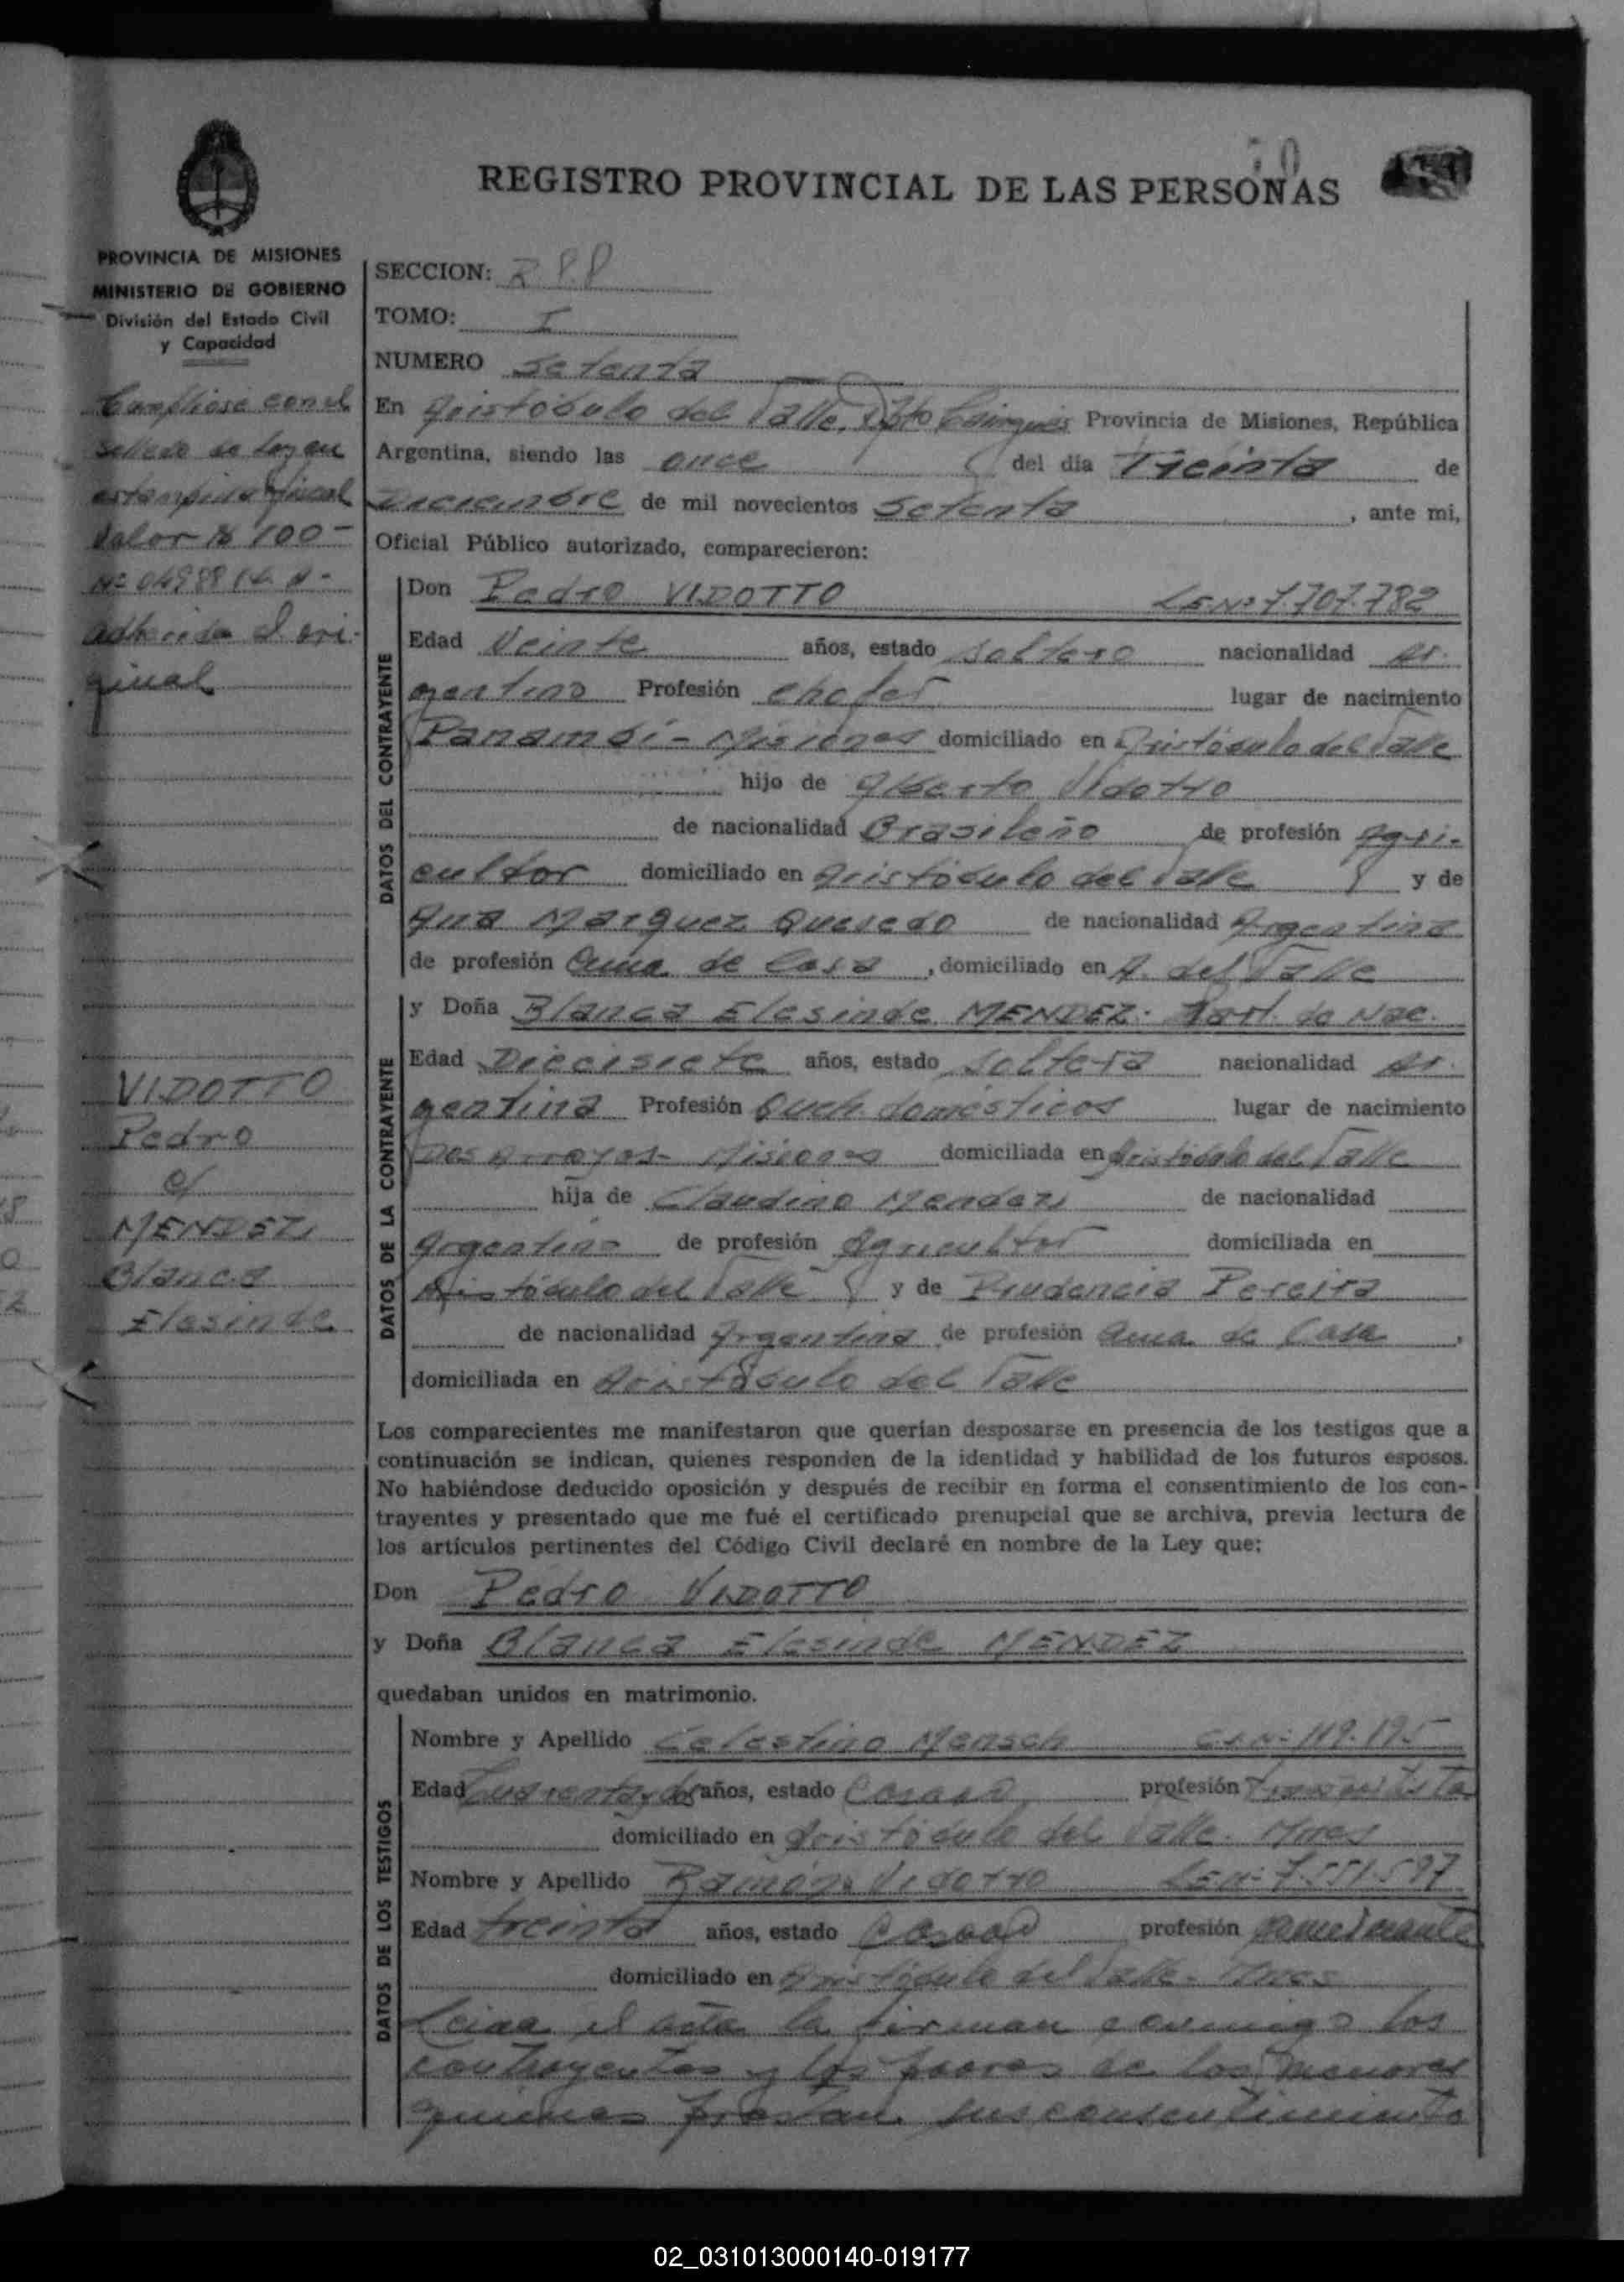 70
REGISTRO PROVINCIAL DE LAS PERSONAS
PROVINCIA DE MISIONES
MINISTERIO DE GOBIERNO
División del Estado Civil
y Capacidad
Cumpliose con el
sellado de Ley en
estampilla fiscal
Valor $ 100-
adherida al ori-
ginal
VIDOTTO
Pedro
c/
MENDEZ
Blanca
Elesinde
SECCION:
TOMO: I
NUMERO Setenta
En Aristóbulo del Valle, Dpto Cainguás Provincia de Misiones, República
Argentina, siendo las once del día Treinta de
Diciembre de mil novecientos Setenta, ante mi,
Oficial Público autorizado, comparecieron:
DATOS DEL CONTRAYENTE
Don Pedro VIDOTTO L.E.Nº 7.707.782
Edad Veinte años, estado Soltero nacionalidad Ar-
gentino Profesión Chofer lugar de nacimiento
Panambí - Misiones domiciliado en Aristóbulo del Valle
hijo de Alberto Vidotto
de nacionalidad Brasileño de profesión Agri-
cultor domiciliado en Aristóbulo del Valle y de
Ana Marquez Quesedo de nacionalidad Argentina
de profesión Ama de Casa, domiciliado en A. del Valle
DATOS DE LA CONTRAYENTE
y Doña Blanca Elesinde MENDEZ. Part. de Nac.
Edad Diecisiete años, estado Soltera nacionalidad Ar-
gentina Profesión Queh. domésticos lugar de nacimiento
Dos Arroyos - Misiones domiciliada en Aristóbulo del Valle
hija de Claudino Mendez de nacionalidad
Argentino de profesión Agricultor domiciliada en
Aristóbulo del Valle y de Prudencia Pereira
de nacionalidad Argentina de profesión Ama de Casa,
domiciliada en Aristóbulo del Valle
Los comparecientes me manifestaron que querían desposarse en presencia de los testigos que a
continuación se indican, quienes responden de la identidad y habilidad de los futuros esposos.
No habiéndose deducido oposición y después de recibir en forma el consentimiento de los con-
trayentes y presentado que me fué el certificado prenupcial que se archiva, previa lectura de
los artículos pertinentes del Código Civil declaré en nombre de la Ley que:
Don Pedro VIDOTTO
y Doña Blanca Elesinde MENDEZ
quedaban unidos en matrimonio.
DATOS DE LOS TESTIGOS
Nombre y Apellido Celestino Mensch 119.195
Edad Cuarenta y dos años, estado Casado profesión
domiciliado en Aristóbulo del Valle. Mnes
Nombre y Apellido Ramón Vidotto L.E.Nº 7.551.597
Edad treinta años, estado Casado profesión comerciante
domiciliado en Aristóbulo del Valle - Mnes
Leída el acta la firman conmigo los
contrayentes y los padres de los menores
quienes prestan sus consentimiento
02_031013000140-019177